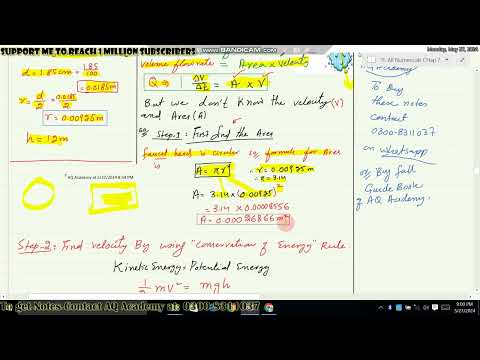 SUPPORT ME TO REACH 1 MILLION SUBSCRIBERS
WWW.BANDICAM.COM
Monday, May 27, 2024
d = 1.85cm = 1.85/100
= 0.0185m
r = d/2 = 0.0185/2
r = 0.00925m
h = 12m
AQ Academy at 5/27/2024 8:54 PM
Volume flow rate = Area x Velocity
Q ⇒ ΔV/Δt = A x V
But we don't know the velocity (V)
and Area (A)
Step-1: First find the Area
faucet head is circular so formula for Area
is A = πr²
r = 0.00925m
π = 3.14
A = 3.14 x (0.00925)²
= 3.14 x 0.00008556
A = 0.00026866m²
Step-2: Find velocity By using "Conservation of Energy" Rule.
Kinetic Energy = Potential Energy
½ mV² = mgh
All Numericals Chap 7
AQ Academy
To Buy
these notes
contact
0300-8311037
on whatsapp
or Buy full
Guide Book
of AQ Academy.
To get Notes Contact AQ Academy at: 0300-8311037
9:00 PM
5/27/2024